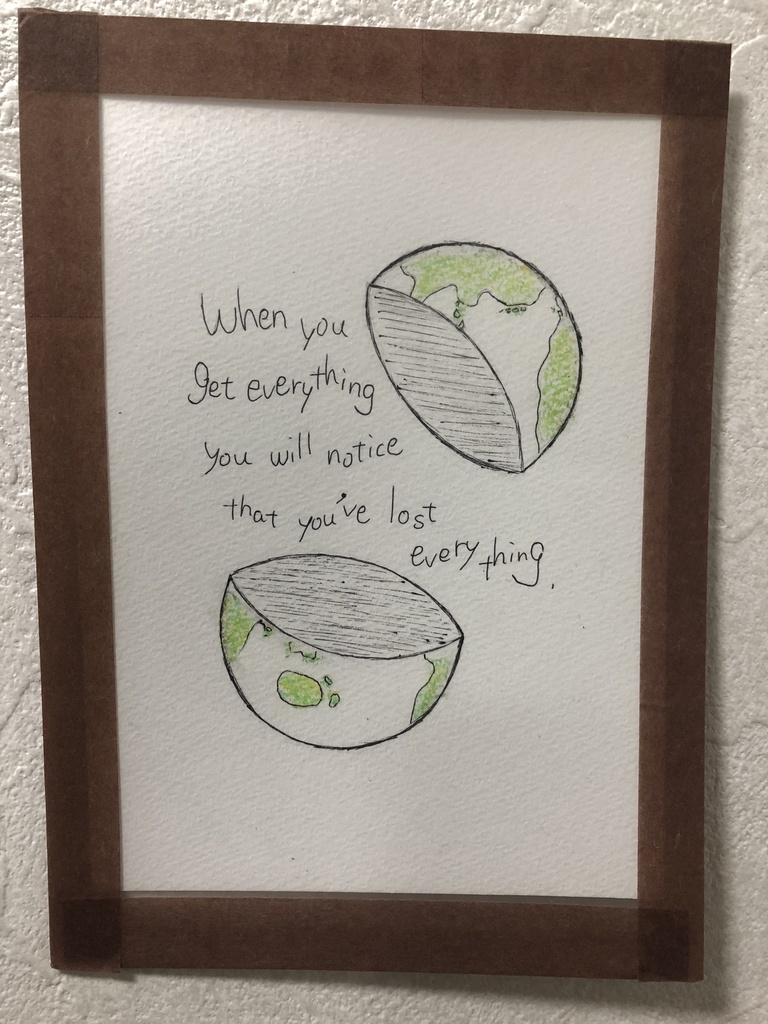 When you
get everything
you will notice
that you've lost
everything.